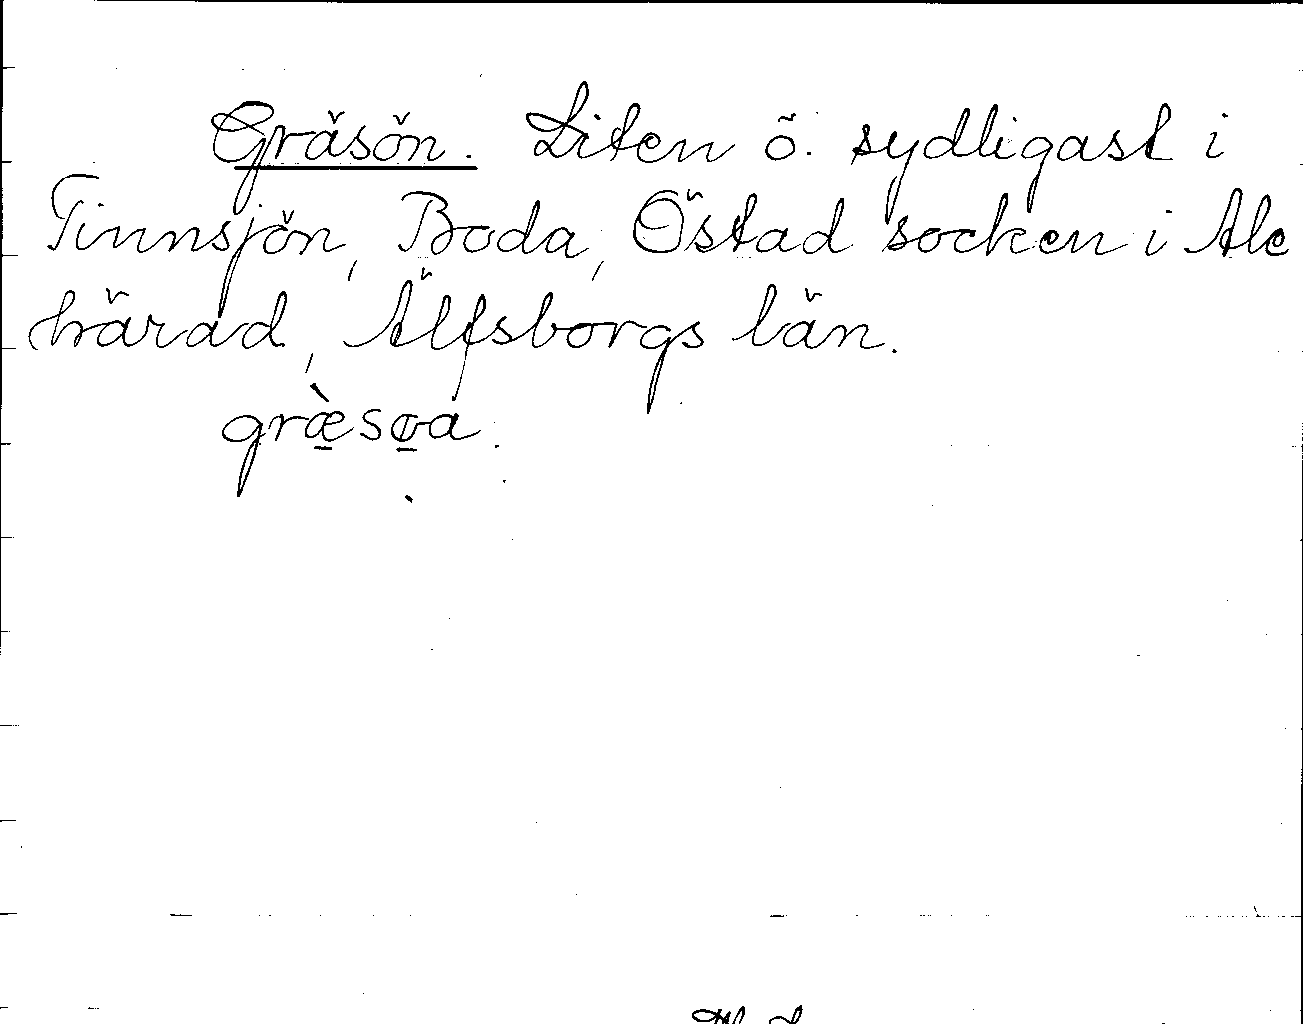 Gräsön. Liten ö sydligast i
Tinnsjön, Boda, Östad socken i Ale
härad, Älfsborgs län.
græ̀sɷa.